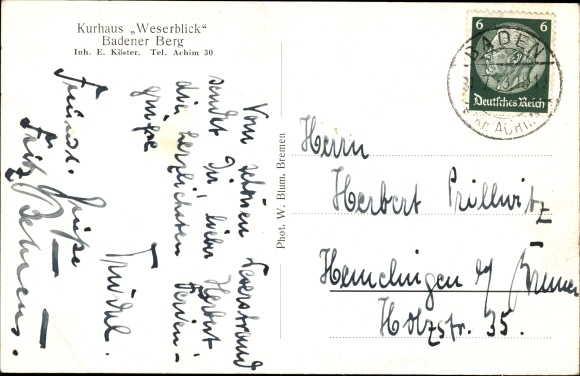 Kurhaus „Weserblick"
Badener Berg
Inh. E. Köster. Tel. Achim 30
Vom schönen Weserstrand
sendet Dir, lieber Herbert
die herzlichsten Ferien-
grüße
Trudel.
Freundl. Grüße
Fritz Behrens.
Phot. W. Blum, Bremen
6 6
Deutsches Reich
BADEN
KR. ACHIM
Herrn
Herbert Prillwitz
Hemelingen b/ Bremen
Holzstr. 35.